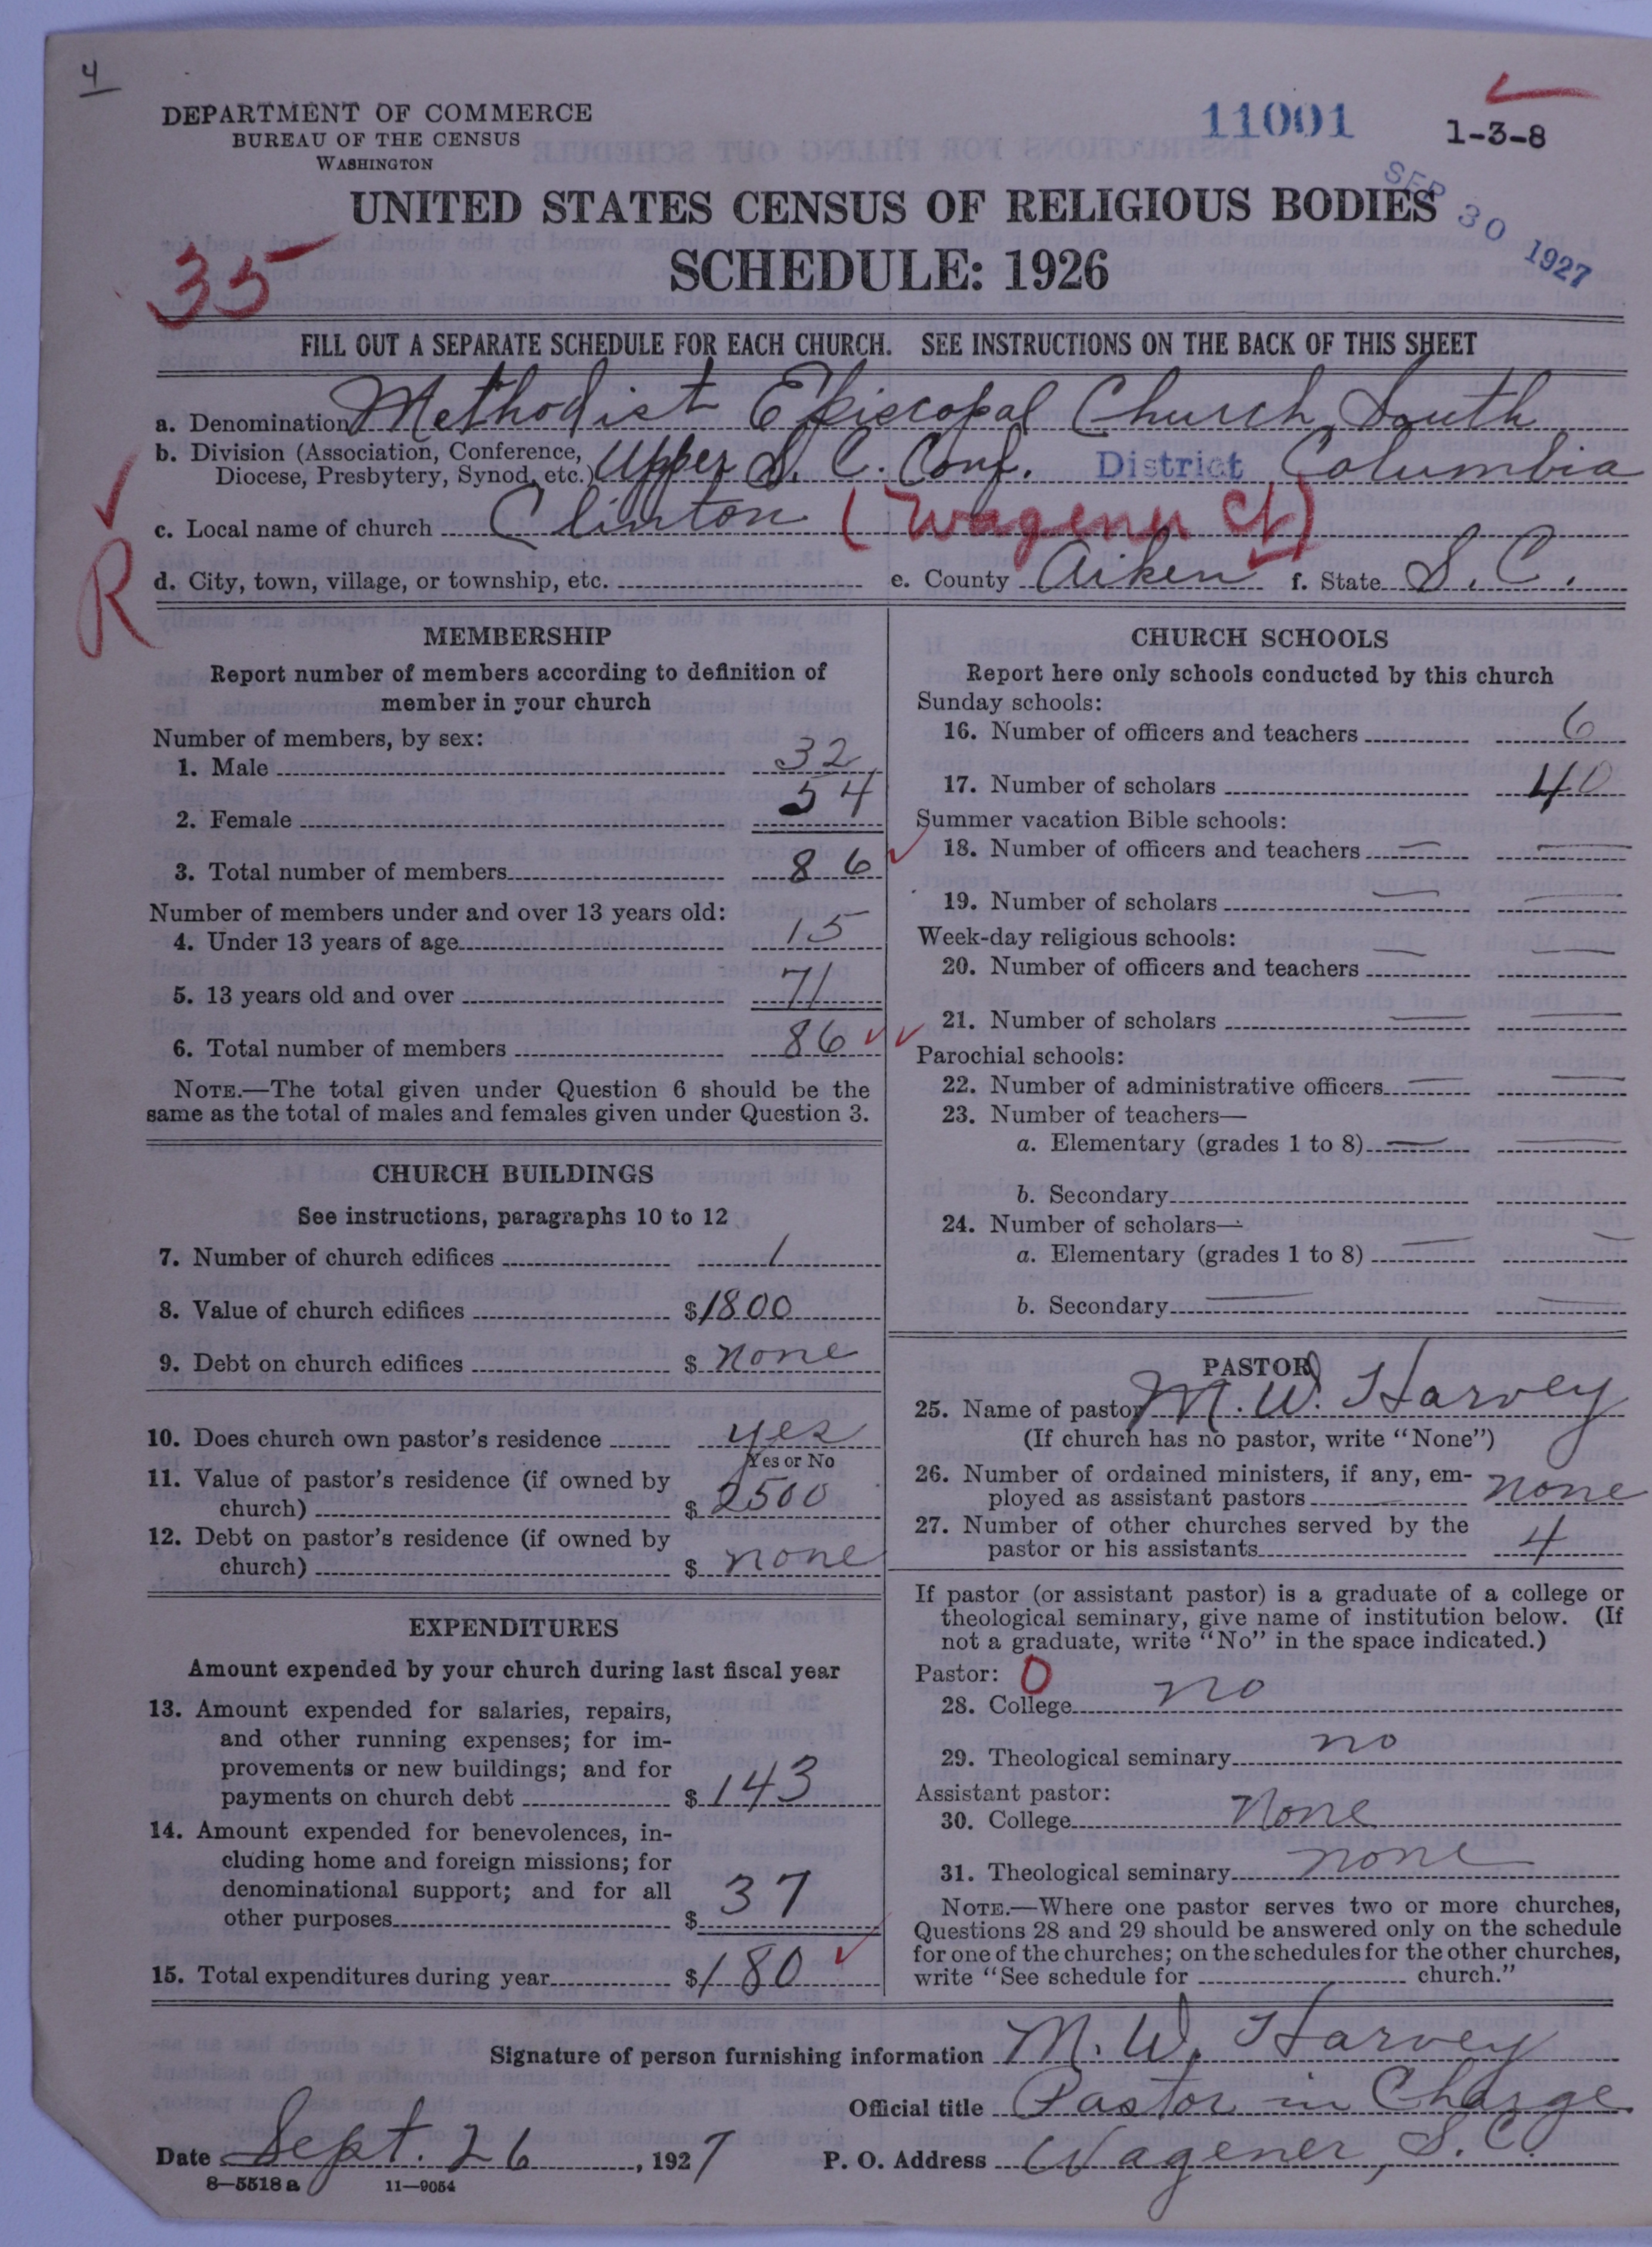 4
DEPARTMENT OF COMMERCE
BUREAU OF THE CENSUS
WASHINGTON
11001
1-3-8
SEP 30 1927
UNITED STATES CENSUS OF RELIGIOUS BODIES
SCHEDULE: 1926
35
FILL OUT A SEPARATE SCHEDULE FOR EACH CHURCH. SEE INSTRUCTIONS ON THE BACK OF THIS SHEET
a. Denomination Methodist Episcopal Church, South
b. Division (Association, Conference,
Diocese, Presbytery, Synod, etc.) Upper S. C. Conf. District Columbia
c. Local name of church Clinton (Wagener Ct)
R
d. City, town, village, or township, etc. e. County Aiken f. State S. C.
MEMBERSHIP
Report number of members according to definition of
member in your church
Number of members, by sex:
1. Male 32
2. Female 54
3. Total number of members 86
Number of members under and over 13 years old:
4. Under 13 years of age 15
5. 13 years old and over 71
6. Total number of members 86
NOTE.—The total given under Question 6 should be the
same as the total of males and females given under Question 3.
CHURCH BUILDINGS
See instructions, paragraphs 10 to 12
7. Number of church edifices 1
8. Value of church edifices $1800
9. Debt on church edifices $ none
10. Does church own pastor's residence yes
Yes or No
11. Value of pastor's residence (if owned by
church) $ 2500
12. Debt on pastor's residence (if owned by
church) $ none
EXPENDITURES
Amount expended by your church during last fiscal year
13. Amount expended for salaries, repairs,
and other running expenses; for im-
provements or new buildings; and for
payments on church debt $ 143
14. Amount expended for benevolences, in-
cluding home and foreign missions; for
denominational support; and for all
other purposes $ 37
15. Total expenditures during year $180
CHURCH SCHOOLS
Report here only schools conducted by this church
Sunday schools:
16. Number of officers and teachers 6
17. Number of scholars 40
Summer vacation Bible schools:
18. Number of officers and teachers
19. Number of scholars
Week-day religious schools:
20. Number of officers and teachers
21. Number of scholars
Parochial schools:
22. Number of administrative officers
23. Number of teachers—
a. Elementary (grades 1 to 8)
b. Secondary
24. Number of scholars—
a. Elementary (grades 1 to 8)
b. Secondary
PASTOR
25. Name of pastor M. W. Harvey
(If church has no pastor, write "None")
26. Number of ordained ministers, if any, em-
ployed as assistant pastors none
27. Number of other churches served by the
pastor or his assistants 4
If pastor (or assistant pastor) is a graduate of a college or
theological seminary, give name of institution below. (If
not a graduate, write "No" in the space indicated.)
Pastor: 0
28. College no
29. Theological seminary no
Assistant pastor:
30. College None
31. Theological seminary none
NOTE.—Where one pastor serves two or more churches,
Questions 28 and 29 should be answered only on the schedule
for one of the churches; on the schedules for the other churches,
write "See schedule for church."
Signature of person furnishing information M. W. Harvey
Official title Pastor in Charge
Date Sept. 26, 1927 P. O. Address Wagener, S. C.
8—5518 a 11—9054